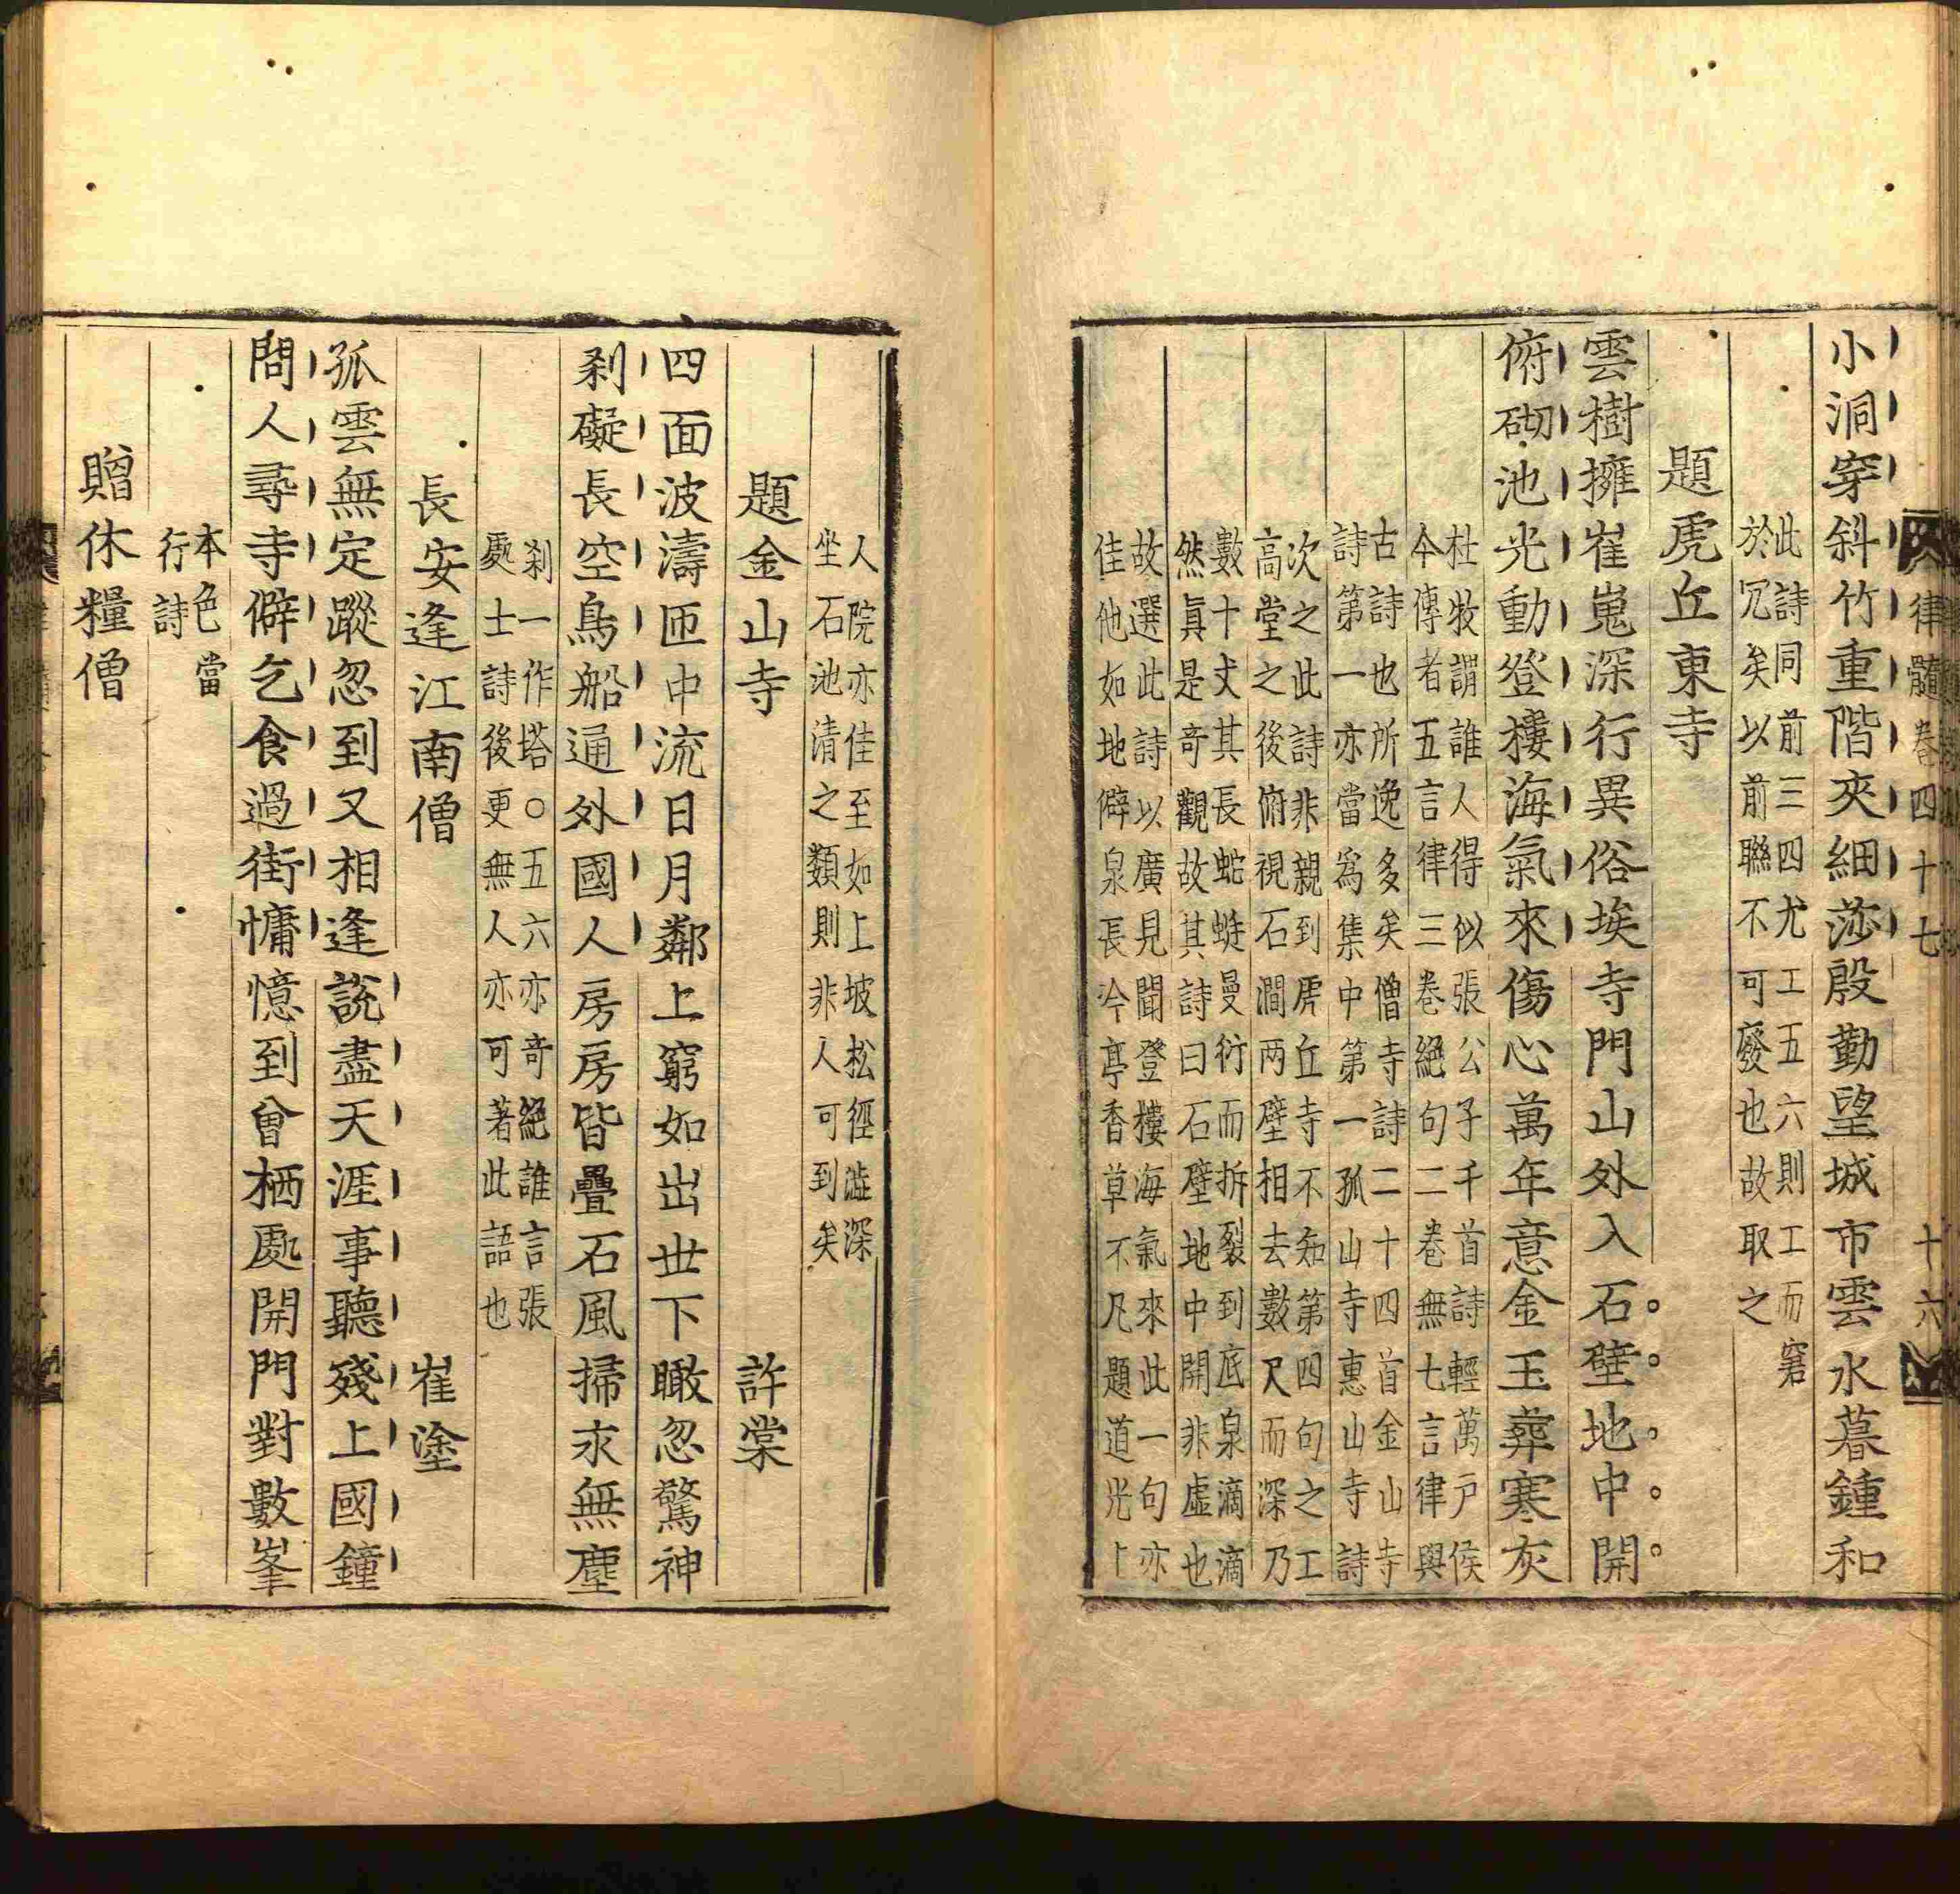 律髓卷四十七 十六
小洞穿斜竹重階夾細莎殷勤望城市雲水暮鍾和
此詩同前三四尤工五六則工而窘
於冗矣以前聯不可廢也故取之
題虎丘東寺
雲樹擁崔嵬深行異俗埃寺門山外入石壁地中開
俯砌池光動登樓海氣來傷心萬年意金玉葬寒灰
杜牧謂誰人得似張公子千首詩輕萬戶侯
今傳者五言律三卷絕句二卷無七言律與
古詩也所逸多矣僧寺詩二十四首金山寺
詩第一亦當為集中第一孤山寺惠山寺詩
次之此詩非親到虎丘寺不知第四句之工
高堂之後俯視石澗两壁相去數尺而深乃
數十丈其長蛇蜒曼衍而拆裂到底泉滴滴
然眞是奇觀故其詩曰石壁地中開非虛也
故選此詩以廣見聞登樓海氣來此一句亦
佳他如地僻泉長冷亭香草不凡題道光上
人院亦佳至如上坡松徑澁深
坐石池清之類則非人可到矣
題金山寺 許棠
四面波濤匝中流日月鄰上窮如出世下瞰忽驚神
刹礙長空鳥船通外國人房房皆疊石風掃永無塵
刹一作塔○五六亦奇絕誰言張
處士詩後更無人亦可著此語也
長安逢江南僧 崔塗
孤雲無定蹤忽到又相逢說盡天涯事聽殘上國鐘
問人尋寺僻乞食過街慵憶到曾栖處開門對數峯
本色當
行詩
贈休糧僧